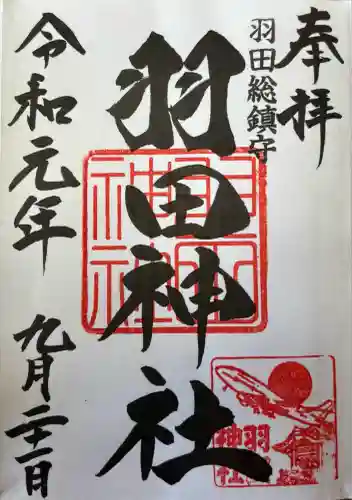 奉拝
羽田総鎮守
羽田神社
令和元年
九月二十一日
羽田
神社